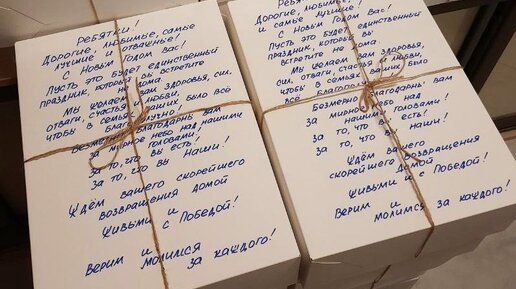 Ребятки!
Дорогие, любимые, самые
лучшие и отважные!
С Новым Годом вас!
Пусть это будет единственный
праздник, который вы встретите
не дома.
Мы желаем вам здоровья, сил,
отваги, счастья и любви,
чтобы в семьях ваших было всё
благополучно!
Безмерно благодарны вам
за мирное небо над нашими
головами!
За то, что вы есть!
За то, что вы Наши!
Ждём вашего скорейшего
возвращения домой
Живыми и с Победой!
Верим и
молимся за каждого!
Ребятки!
Дорогие, любимые,
и самые лучшие!
С Новым Годом вас!
Пусть это будет единственный
праздник, который вы
встретите не дома.
Мы желаем вам здоровья,
сил, отваги, счастья и любви,
чтобы в семьях ваших было
всё благополучно!
Безмерно благодарны вам
за мирное небо над
нашими головами!
За то, что вы есть!
За то, что вы Наши!
Ждём вашего
скорейшего возвращения
домой
Живыми и с Победой!
Верим и
молимся за каждого!